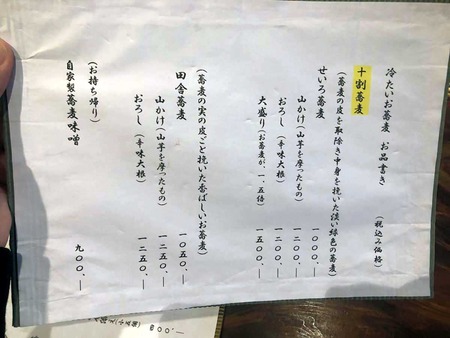 冷たいお蕎麦　お品書き　（税込み価格）
十割蕎麦
（蕎麦の皮を取除き中身を挽いた淡い緑色の蕎麦）
せいろ蕎麦　一〇〇〇、―
山かけ（山芋を摩ったもの）　一二〇〇、―
おろし（辛味大根）　一二〇〇、―
大盛り（お蕎麦が、一、五倍）　一五〇〇、―
（蕎麦の実の皮ごと挽いた香ばしいお蕎麦）
田舎蕎麦　一〇五〇、―
山かけ（山芋を摩ったもの）　一二五〇、―
おろし（辛味大根）　一二五〇、―
（お持ち帰り）
自家製蕎麦味噌　九〇〇、―
800、―